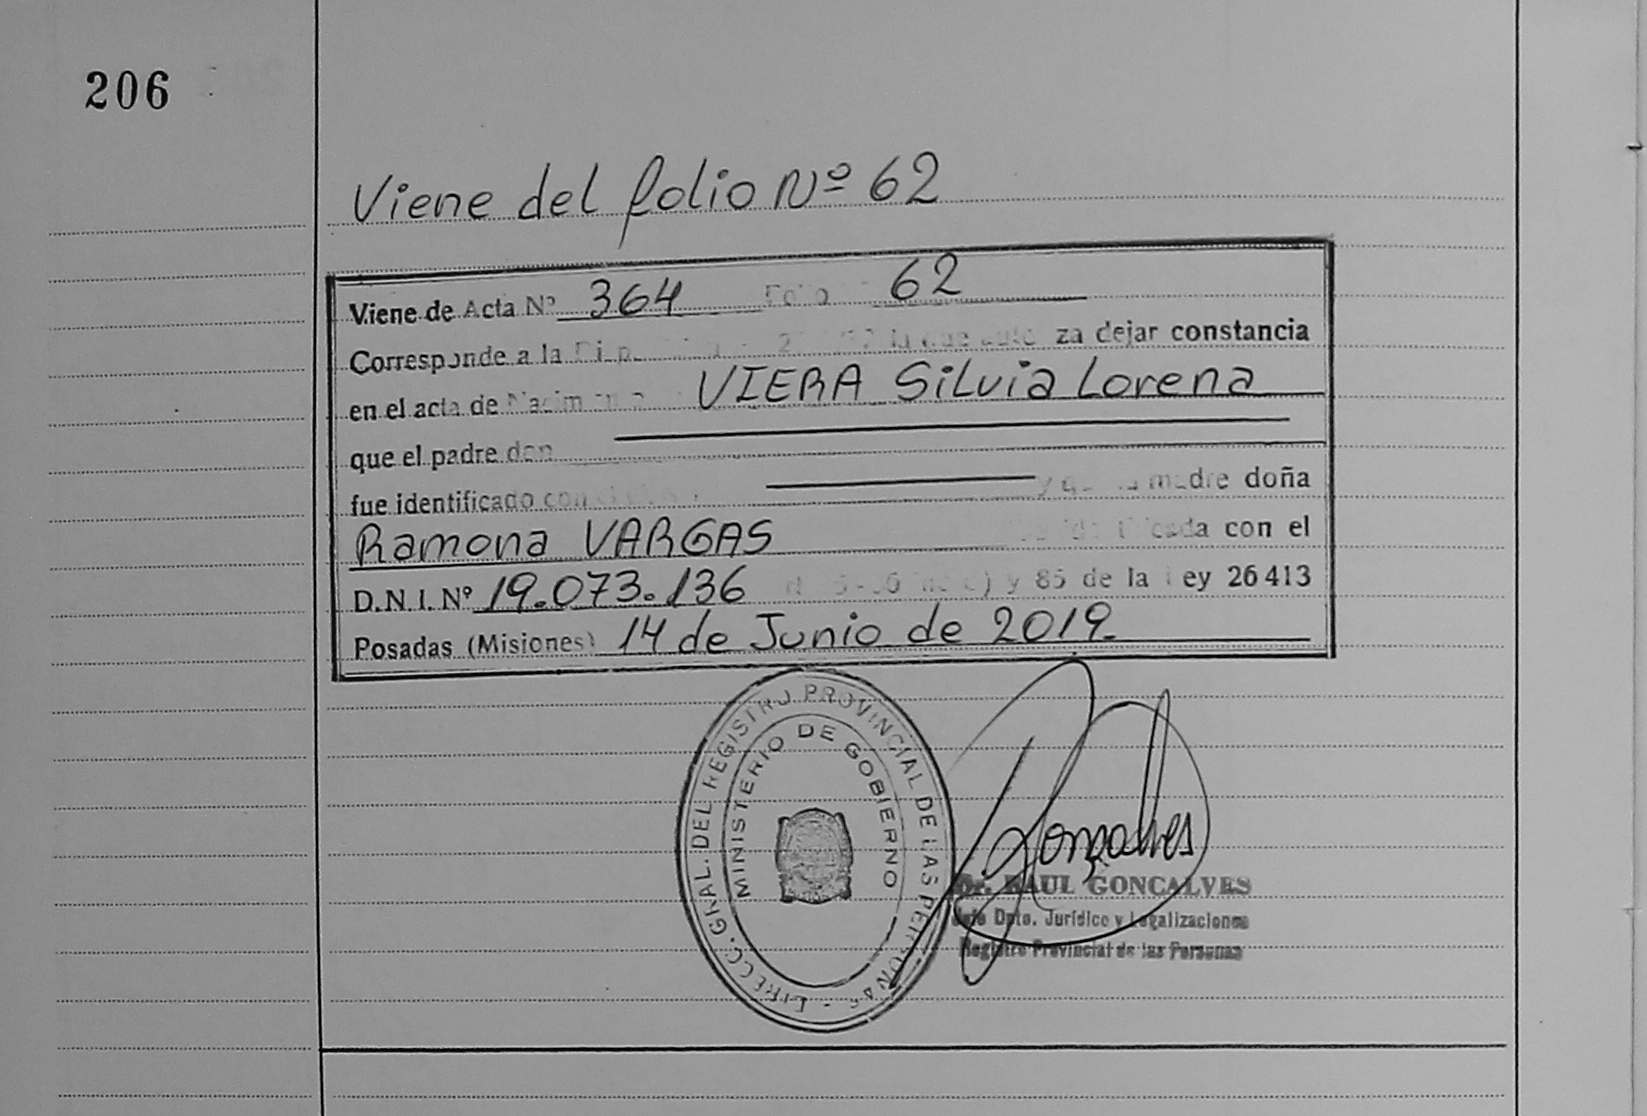 206
Viene del folio Nº 62
Viene de Acta Nº 364 Folio 62
Corresponde a la za dejar constancia
en el acta de Nacimiento VIERA Silvia Lorena
que el padre don
fue identificado con y que la madre doña
Ramona VARGAS identificada con el
D.N.I. Nº 19.073.136 y 85 de la Ley 26413
Posadas (Misiones) 14 de Junio de 2019.
DIRECC. GRAL. DEL REGISTRO PROVINCIAL DE LAS PERSONAS -
MINISTERIO DE GOBIERNO
Gonçalves
Dr. RAUL GONCALVES
Jefe Dpto. Jurídico y Legalizaciones
Registro Provincial de las Personas